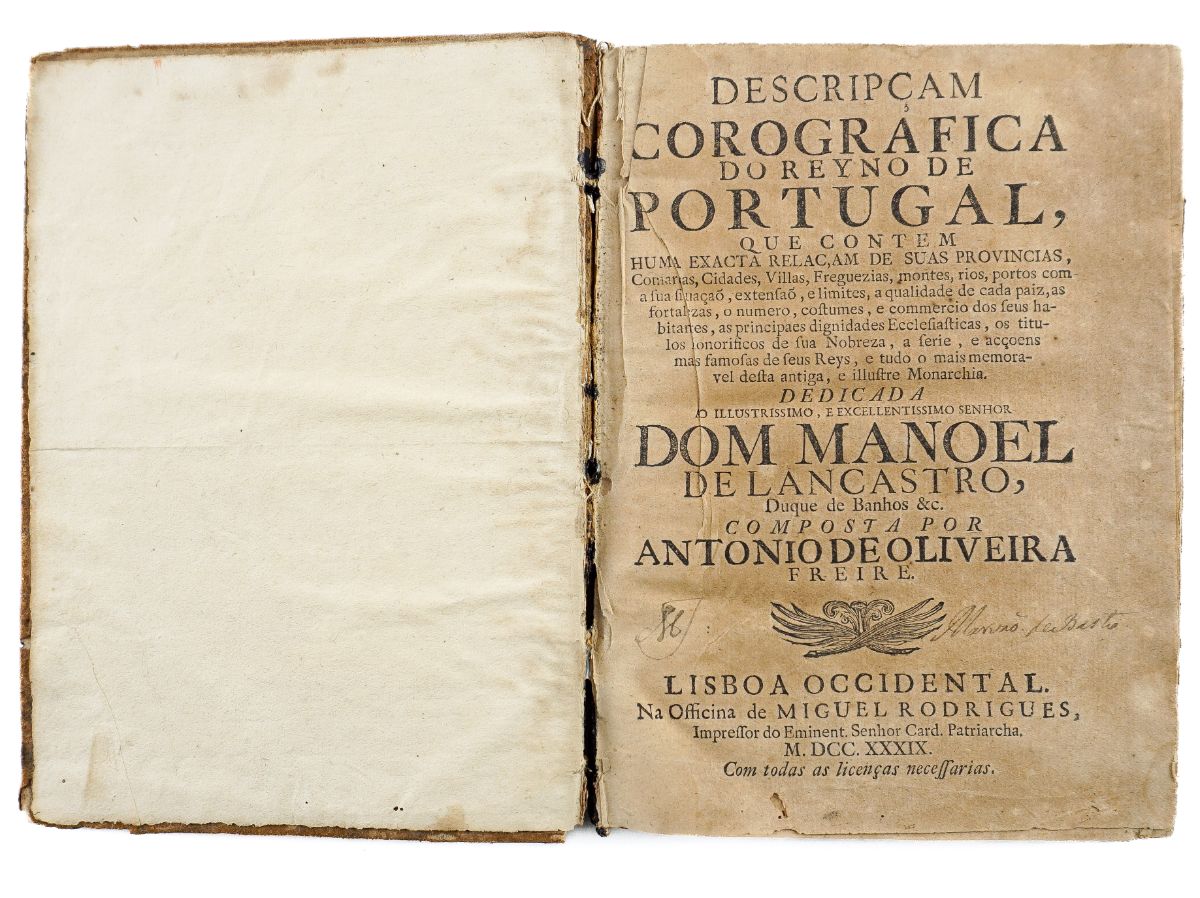 DESCRIPÇAM
COROGRAFICA
DO REYNO DE
PORTUGAL,
QUE CONTEM
HUMA EXACTA RELAC,AM DE SUAS PROVINCIAS,
Comarcas, Cidades, Villas, Freguezias, montes, rios, portos com
a sua situaçaõ, extensaõ, e limites, a qualidade de cada paiz, as
fortalezas, o numero, costumes, e commercio dos seus ha-
bitantes, as principaes dignidades Ecclesiasticas, os titu-
los honorificos de sua Nobreza, a serie, e acçoens
mas famosas de seus Reys, e tudo o mais memora-
vel desta antiga, e illustre Monarchia.
DEDICADA
AO ILLUSTRISSIMO, E EXCELLENTISSIMO SENHOR
DOM MANOEL
DE LANCASTRO,
Duque de Banhos &c.
COMPOSTA POR
ANTONIO DE OLIVEIRA
FREIRE.
LISBOA OCCIDENTAL.
Na Officina de MIGUEL RODRIGUES,
Impressor do Eminent. Senhor Card. Patriarcha.
M. DCC. XXXIX.
Com todas as licenças necessarias.